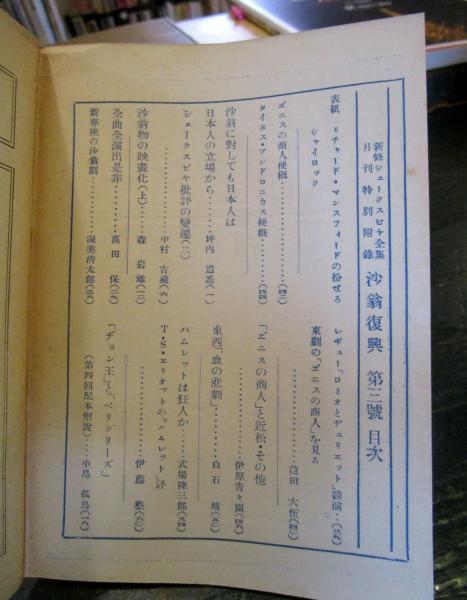 新修シェークスピヤ全集
月刊特別附錄
沙翁復興 第三號 目次
表紙 リチャード・マンスフィードの扮せる
シャイロック
ヹニスの商人梗概…………(四三)
タイタス・アンドロニカス梗概………(四四)
沙翁に對しても日本人は
日本人の立場から……坪內 逍遙(一)
シェークスピヤ批評の變遷(二)
中村 吉藏(六)
沙翁物の映畫化(上)……森 岩雄(一三)
全曲全演出是非………高田 保(二九)
新春座の沙翁劇………渥美淸太郎(三六)
レギュー「ロミオとヂュリエット」競演‥(三九)
東劇の「ヹニスの商人」を見る
大伍(四一)
「ヹニスの商人」と近松・その他
伊原靑々園(四六)
東西「血の悲劇」………白石 靖(五〇)
ハムレットは狂人か……式場隆三郞(五四)
T・S・エリオットの「ハムレット」評
伊藤 整(六〇)
「ヂョン王」と「ペリクリーズ」
(第四回配本解說)……中島 孤島(一八)